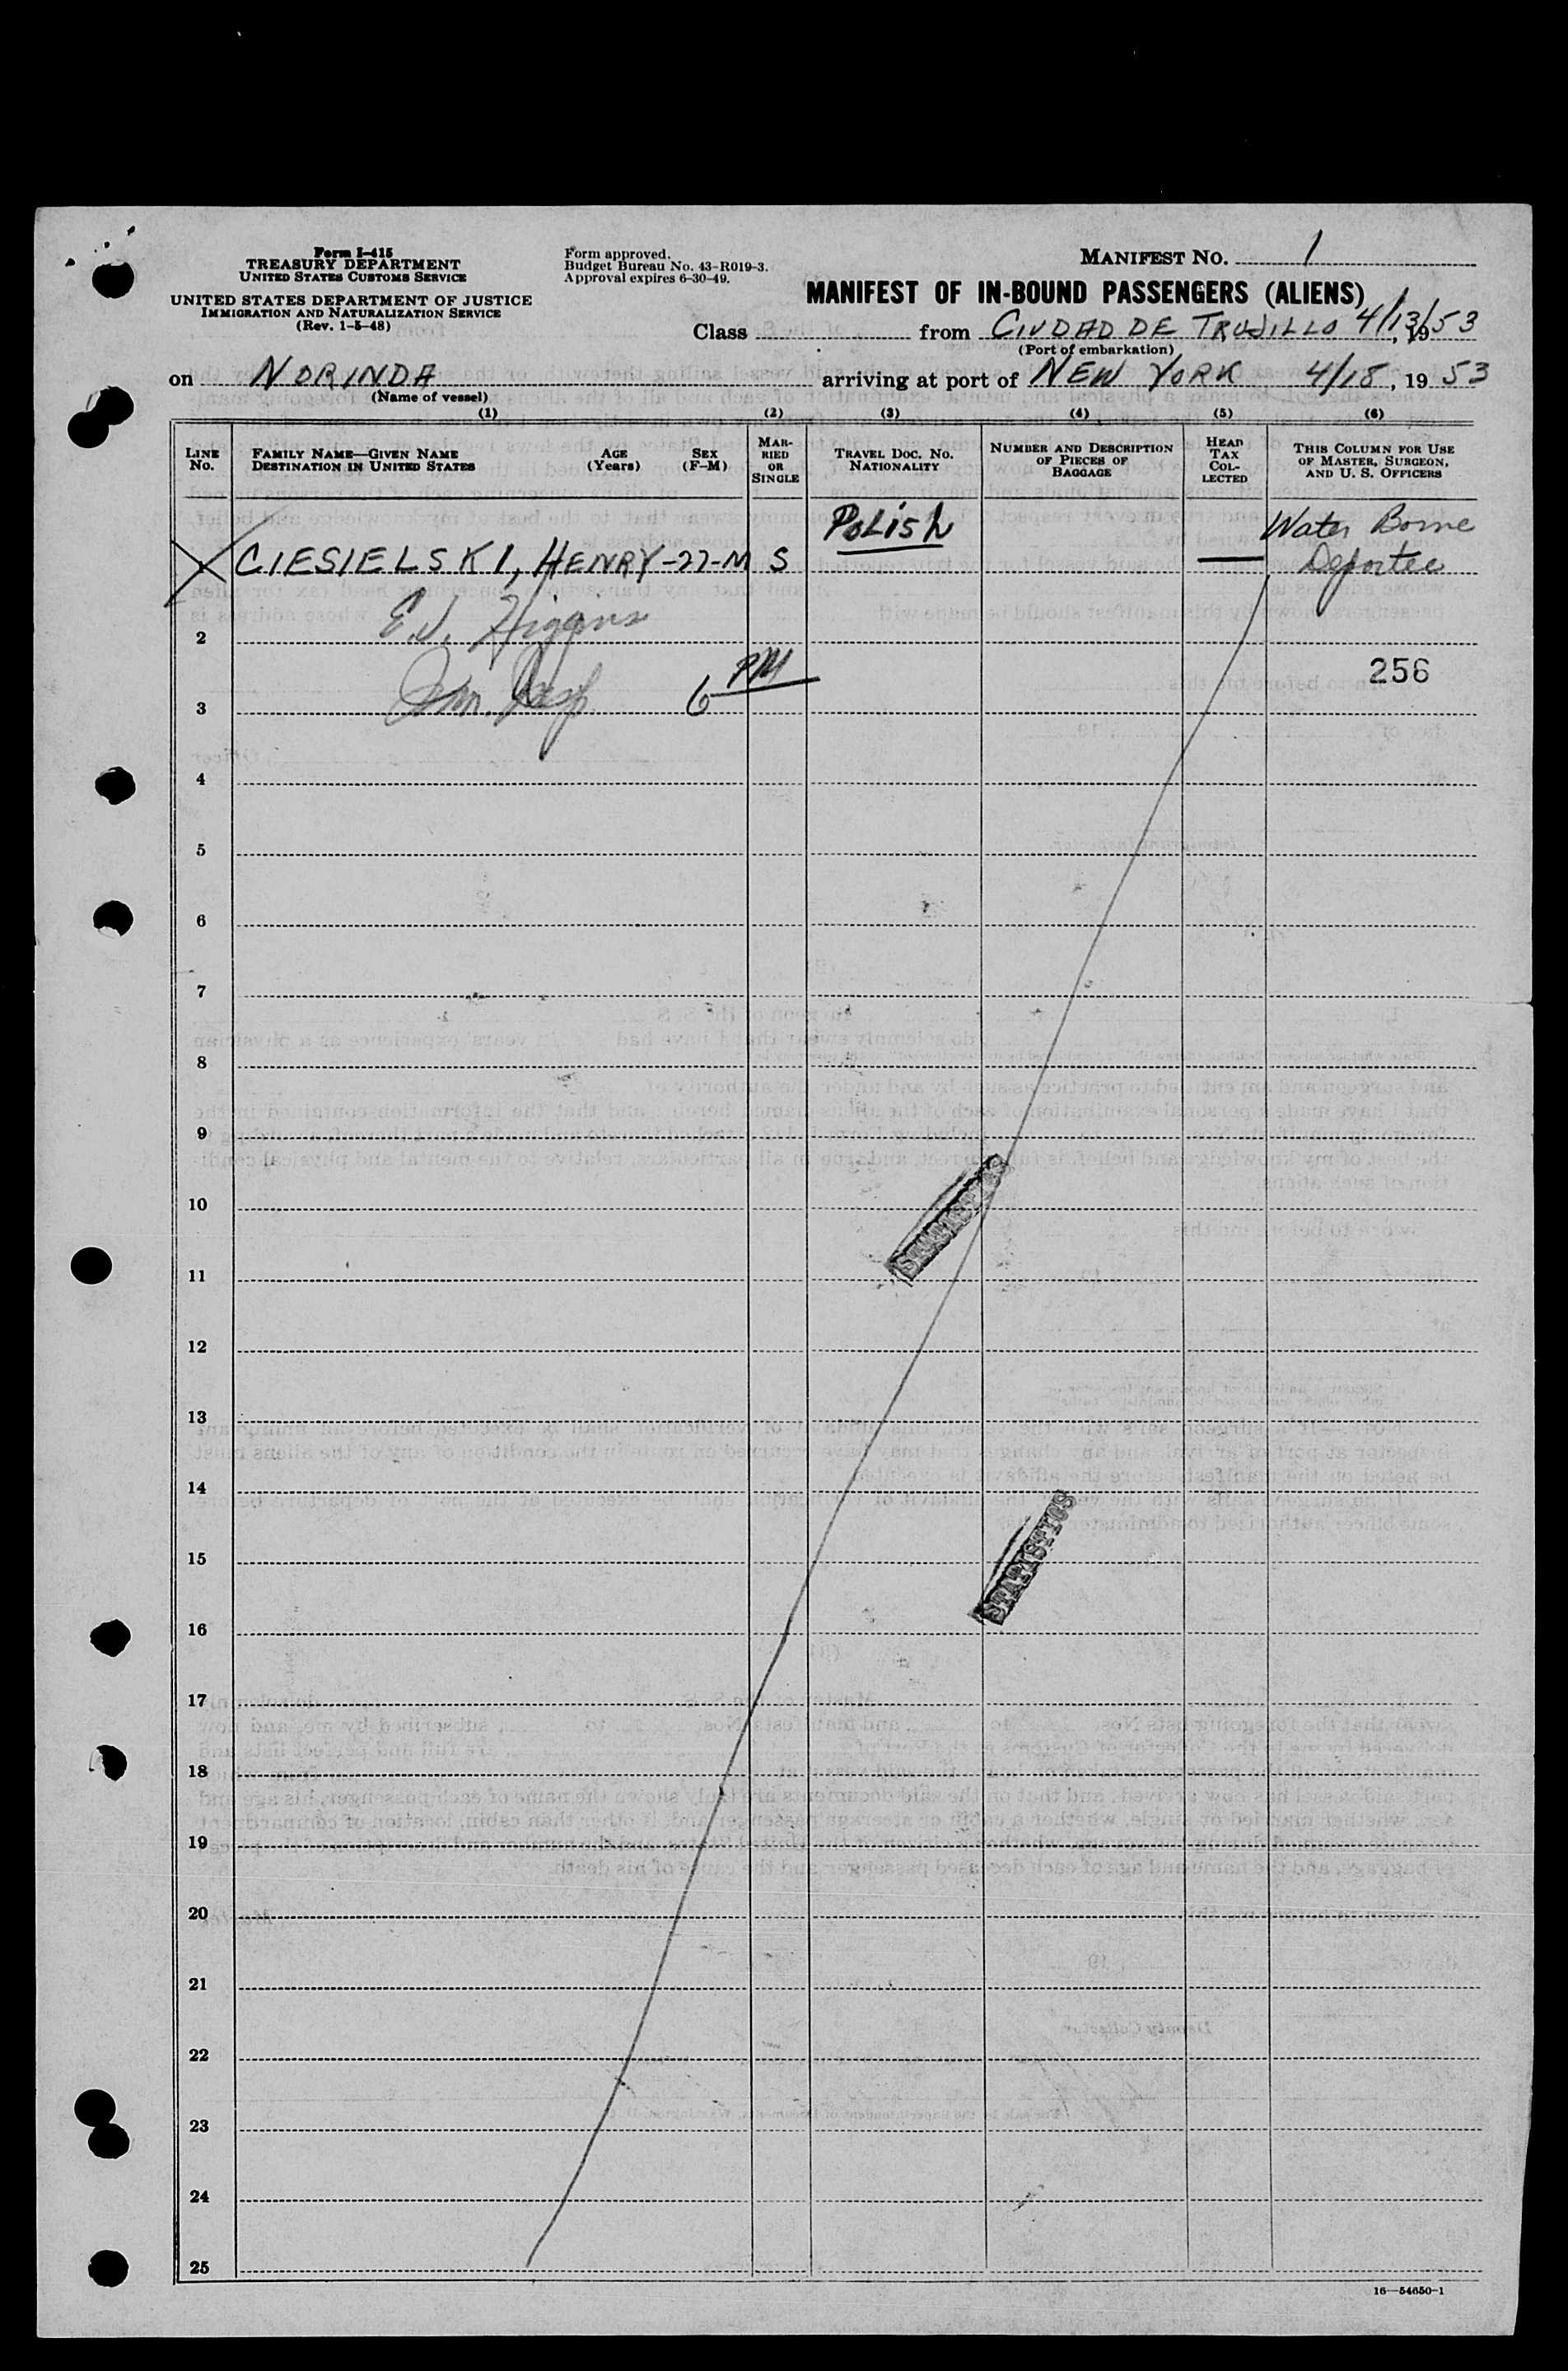 Form I-415
TREASURY DEPARTMENT
UNITED STATES CUSTOMS SERVICE
UNITED STATES DEPARTMENT OF JUSTICE
IMMIGRATION AND NATURALIZATION SERVICE
(Rev. 1-5-48)
Form approved.
Budget Bureau No. 43-R019-3.
Approval expires 6-30-49.
MANIFEST NO. 1
MANIFEST OF IN-BOUND PASSENGERS (ALIENS)
Class from CIUDAD DE TRUJILLO 4/13/53, 19
(Port of embarkation)
on NORINDA arriving at port of NEW YORK 4/18, 19 53
(Name of vessel)
(1) (2) (3) (4) (5) (6)
LINE NO.
FAMILY NAME—GIVEN NAME
DESTINATION IN UNITED STATES
AGE (Years)
SEX (F-M)
MARRIED OR SINGLE
TRAVEL DOC. NO.
NATIONALITY
NUMBER AND DESCRIPTION OF PIECES OF BAGGAGE
HEAD TAX COLLECTED
THIS COLUMN FOR USE OF MASTER, SURGEON, AND U. S. OFFICERS
Polish
Water Borne
CIESIELSKI, HENRY-22-M S — Deportee
E.J. Higgins
2
256
6 PM
3
4
5
6
7
8
9
10
STATISTICS
11
12
13
14
STATISTICS
15
16
17
18
19
20
21
22
23
24
25
16—54650-1